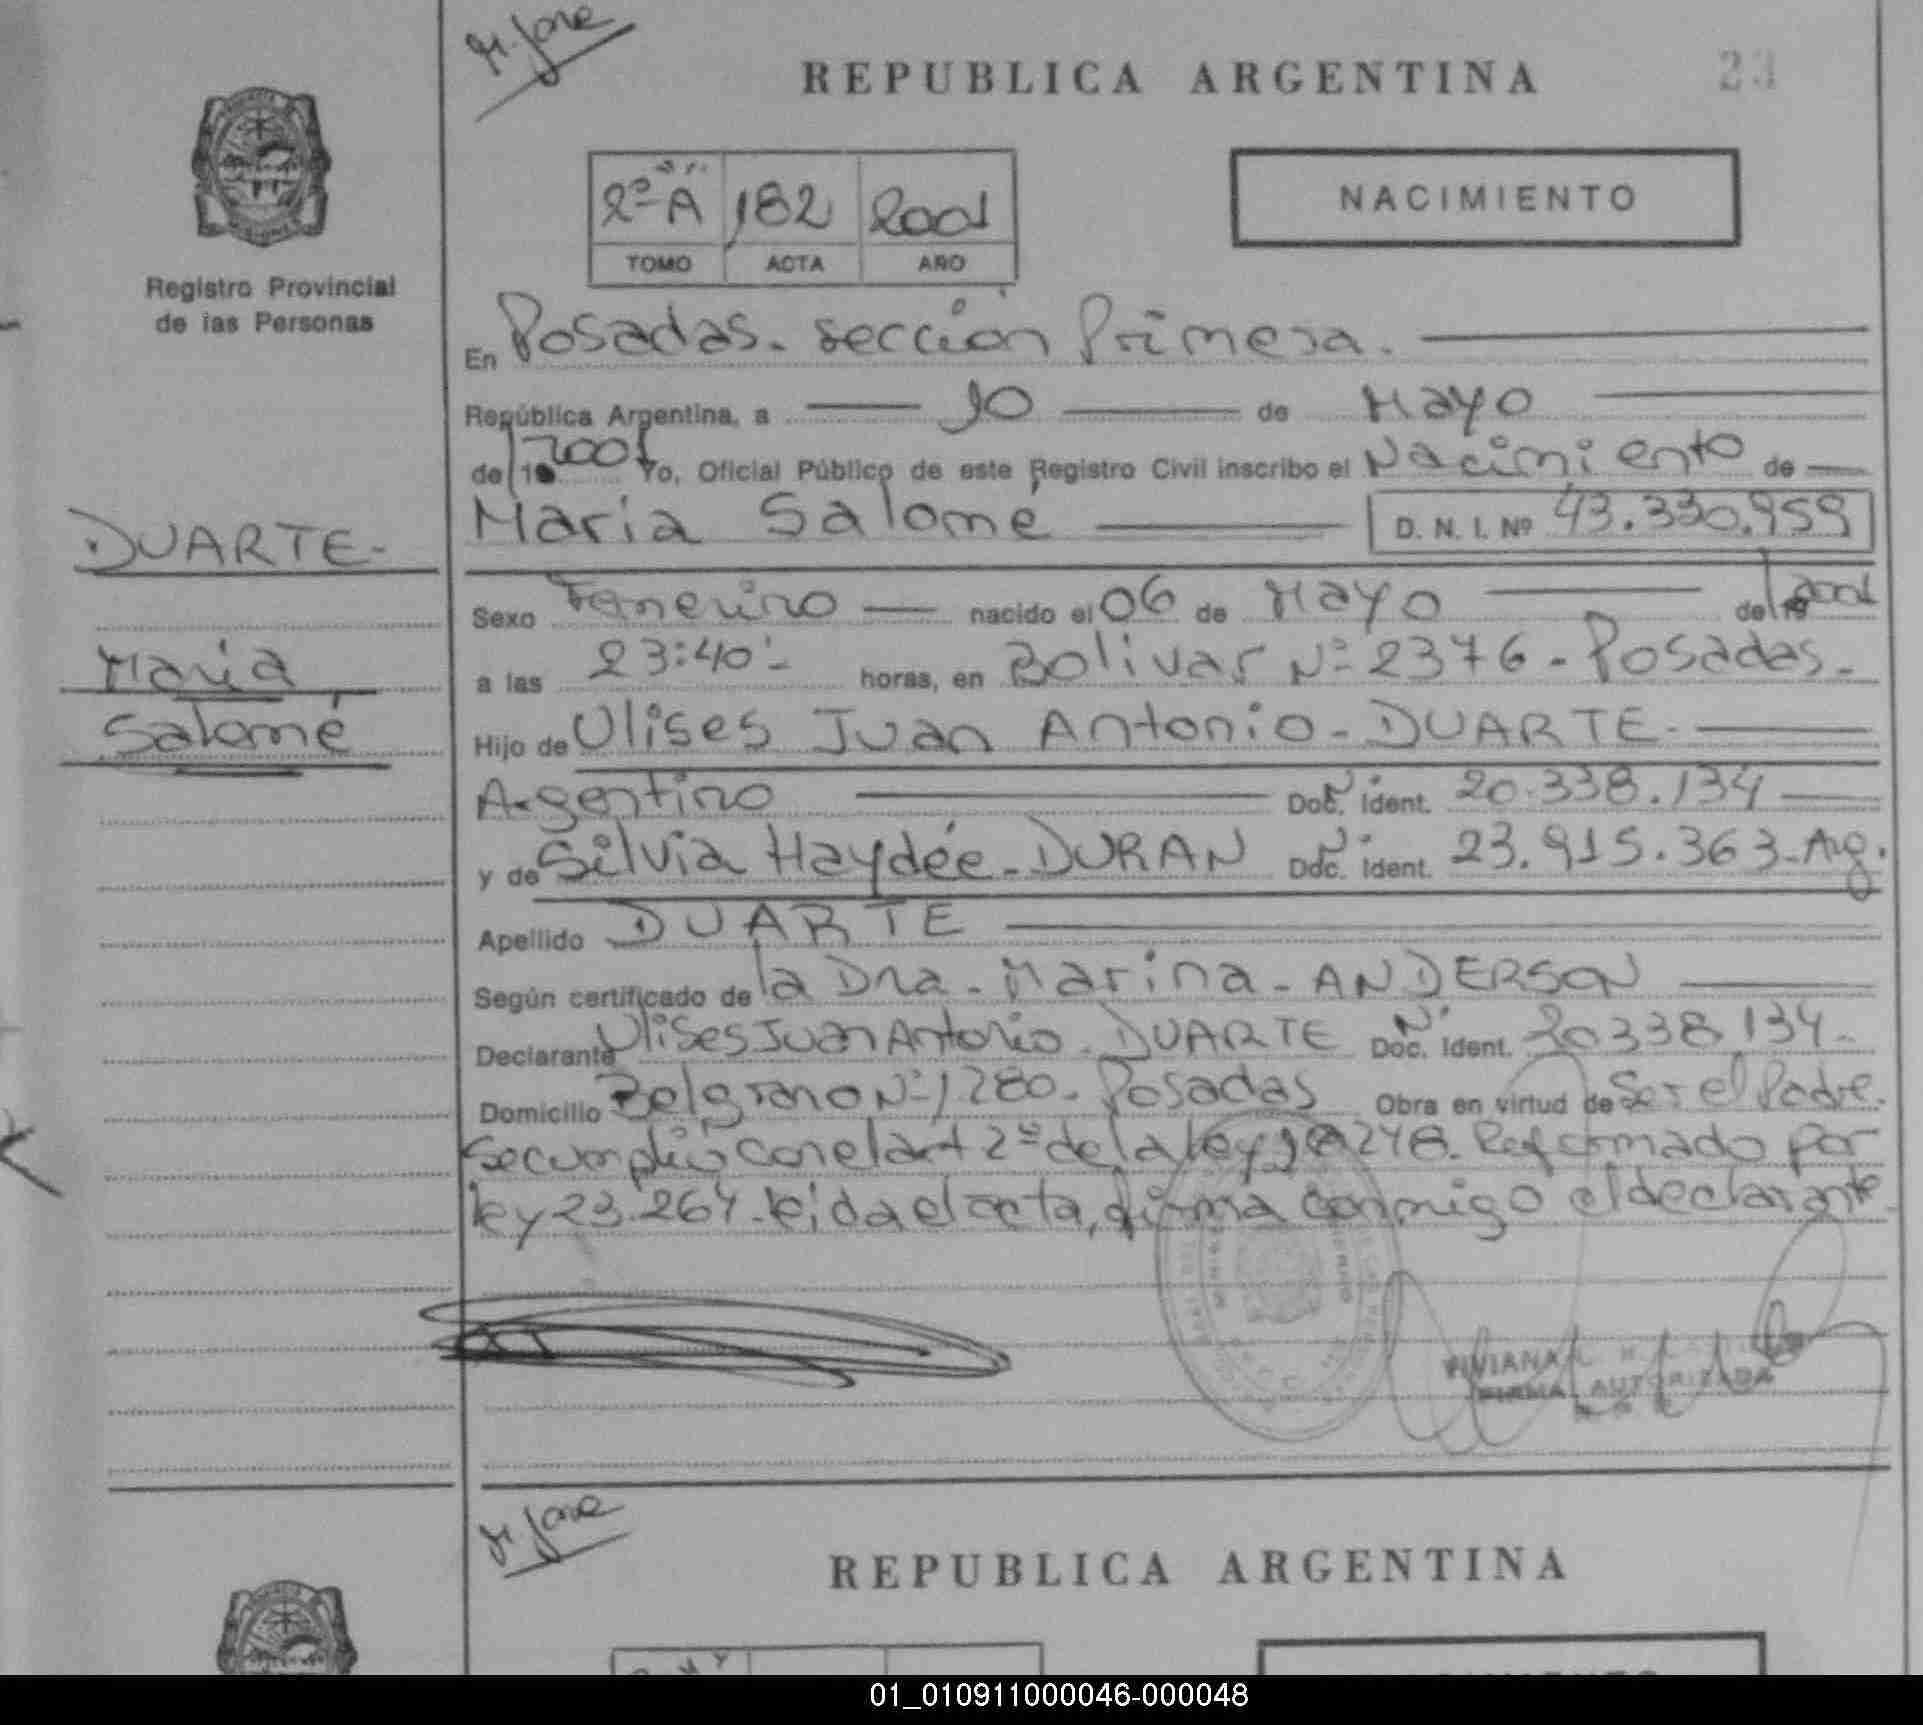 M. José
REPUBLICA ARGENTINA 23
2º A 182 2001
TOMO ACTA AÑO
NACIMIENTO
Registro Provincial
de las Personas
En Posadas. sección Primera.
República Argentina, a 10 de Mayo
de 2001 Yo, Oficial Público de este Registro Civil inscribo el Nacimiento de
María Salomé D. N. I. Nº 43.330.959
DUARTE-
María
Salomé
Sexo Femenino nacido el 06 de Mayo de 2001
a las 23:40- horas, en Bolivar Nº 2376 - Posadas-
Hijo de Ulises Juan Antonio - DUARTE-
Argentino Doc. Ident. Nº 20.338.134
y de Silvia Haydée - DURAN Doc. Ident. Nº 23.915.363-Arg.
Apellido DUARTE
Según certificado de la Dra. Marina - ANDERSON
Declarante Ulises Juan Antonio. DUARTE Doc. Ident. Nº 20338134-
Domicilio Belgrano Nº 1280. Posadas Obra en virtud de Ser el Padre.
Se cumplió con el art 2º de la ley 18248. Reformado por
ley 23.264. leida el acta, firma conmigo el declarante.
VIVIANA
FIRMA AUTORIZADA
M. José
REPUBLICA ARGENTINA
01_010911000046-000048